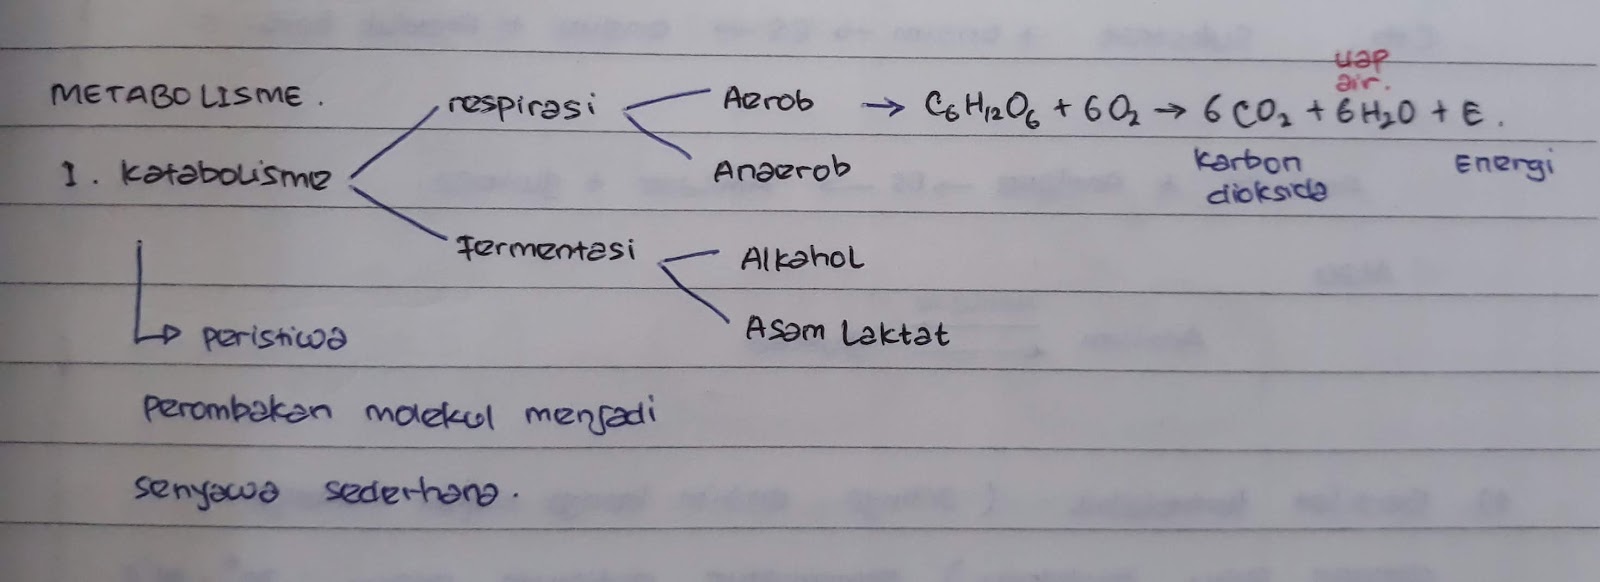 uap
air.
METABOLISME. respirasi Aerob → C₆H₁₂O₆ + 6O₂ → 6CO₂ + 6H₂O + E.
I. Katabolisme Anaerob karbon dioksida Energi
Fermentasi Alkahol
Asam Laktat
peristiwa
perombakan molekul menjadi
senyawa sederhana.